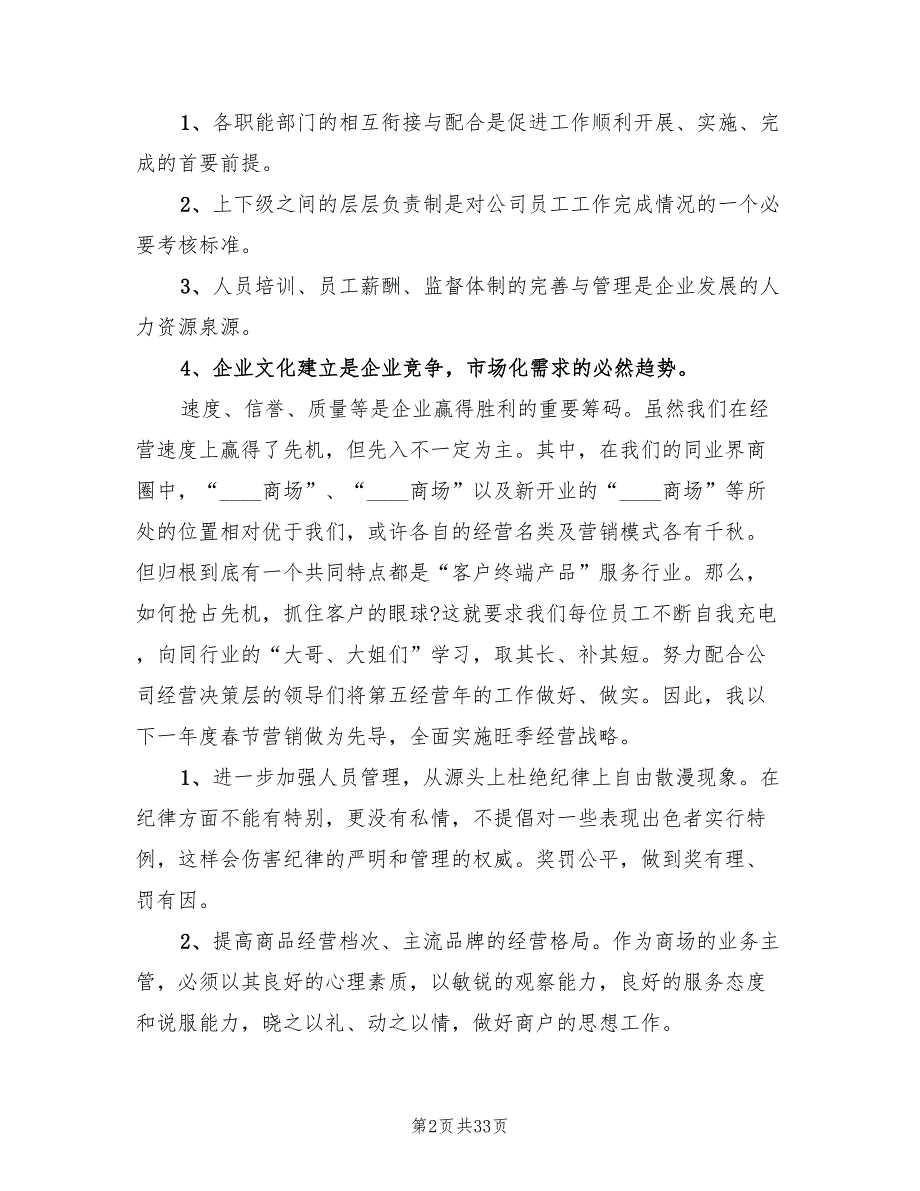 1、各职能部门的相互衔接与配合是促进工作顺利开展、实施、完
成的首要前提。
2、上下级之间的层层负责制是对公司员工工作完成情况的一个必
要考核标准。
3、人员培训、员工薪酬、监督体制的完善与管理是企业发展的人
力资源泉源。
4、企业文化建立是企业竞争，市场化需求的必然趋势。
速度、信誉、质量等是企业赢得胜利的重要筹码。虽然我们在经
营速度上赢得了先机，但先入不一定为主。其中，在我们的同业界商
圈中，“____商场”、“____商场”以及新开业的“____商场”等所
处的位置相对优于我们，或许各自的经营名类及营销模式各有千秋。
但归根到底有一个共同特点都是“客户终端产品”服务行业。那么，
如何抢占先机，抓住客户的眼球?这就要求我们每位员工不断自我充电
，向同行业的“大哥、大姐们”学习，取其长、补其短。努力配合公
司经营决策层的领导们将第五经营年的工作做好、做实。因此，我以
下一年度春节营销做为先导，全面实施旺季经营战略。
1、进一步加强人员管理，从源头上杜绝纪律上自由散漫现象。在
纪律方面不能有特别，更没有私情，不提倡对一些表现出色者实行特
例，这样会伤害纪律的严明和管理的权威。奖罚公平，做到奖有理、
罚有因。
2、提高商品经营档次、主流品牌的经营格局。作为商场的业务主
管，必须以其良好的心理素质，以敏锐的观察能力，良好的服务态度
和说服能力，晓之以礼、动之以情，做好商户的思想工作。
第2页共33页